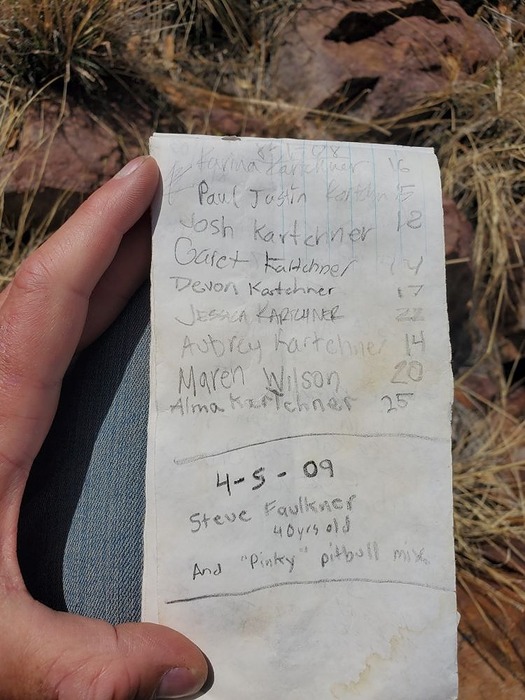 Karina Kartchner 16
Paul Justin Kartchn 5
Josh Kartchner 12
Garet Kartchner 14
Devon Kartchner 17
JESSICA KARTCHNER 22
Aubrey Kartchner 14
Maren Wilson 20
Alma Kartchner 25
4-5-09
Steve Faulkner
40yrs old
And "Pinky" pitbull mix